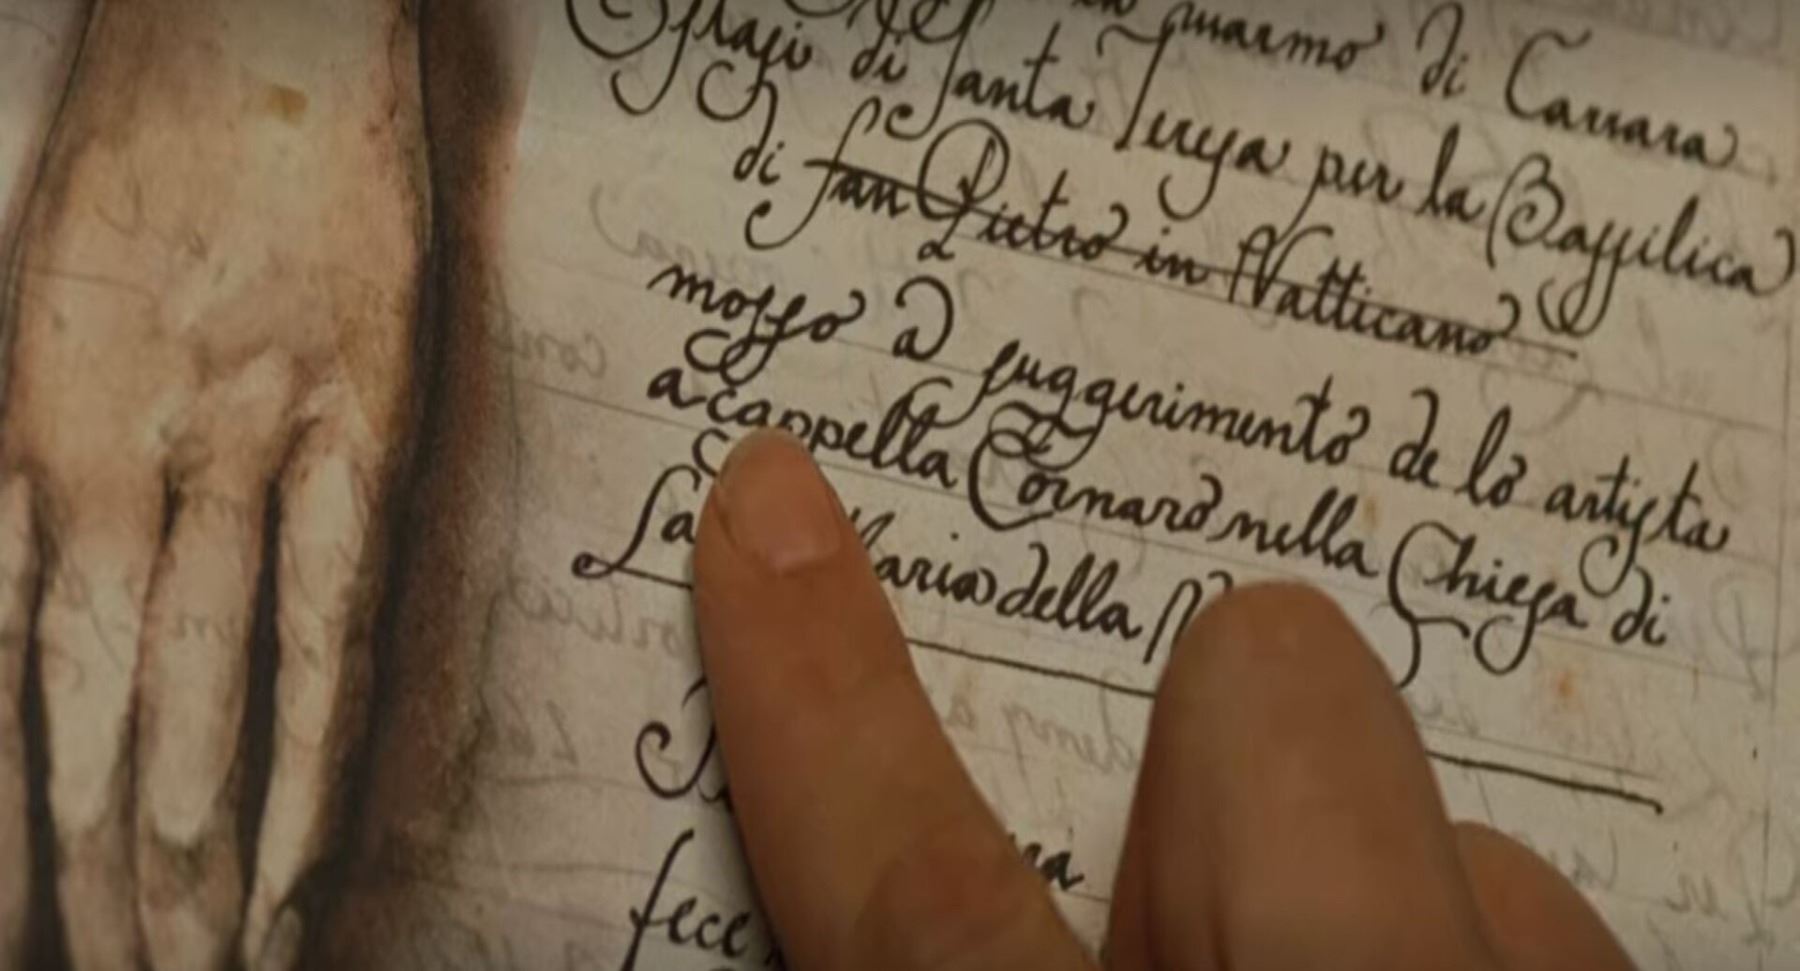 in marmo di Carrara
Estasi di Santa Teresa per la Bassilica
di San Pietro in Vatticano
mosso a suggerimento de lo artista
a cappella Cornaro nella Chiesa di
Maria della
fece